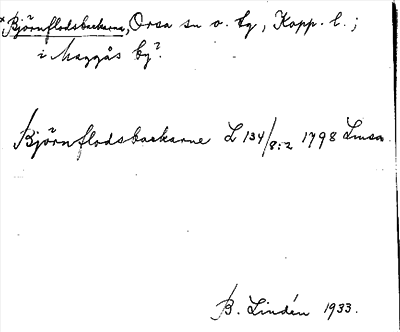 *Björnflodsbackarne, Orsa sn o. tg, Kopp. l.;
i Maggås by?
Björnflodsbackarne L 134/8:2 1798 Linsa
B. Lindén 1933.